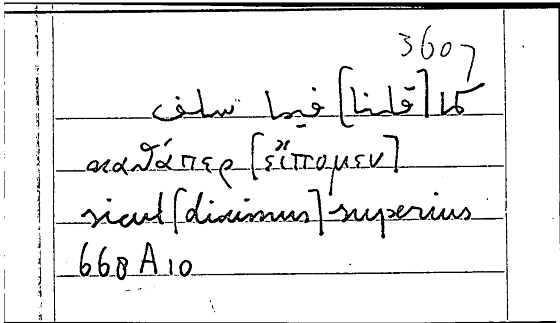 3607
كما [قلنا] فيما سلف
καθάπερ [εἴπομεν]
sicut [diximus] superius
668 A 10